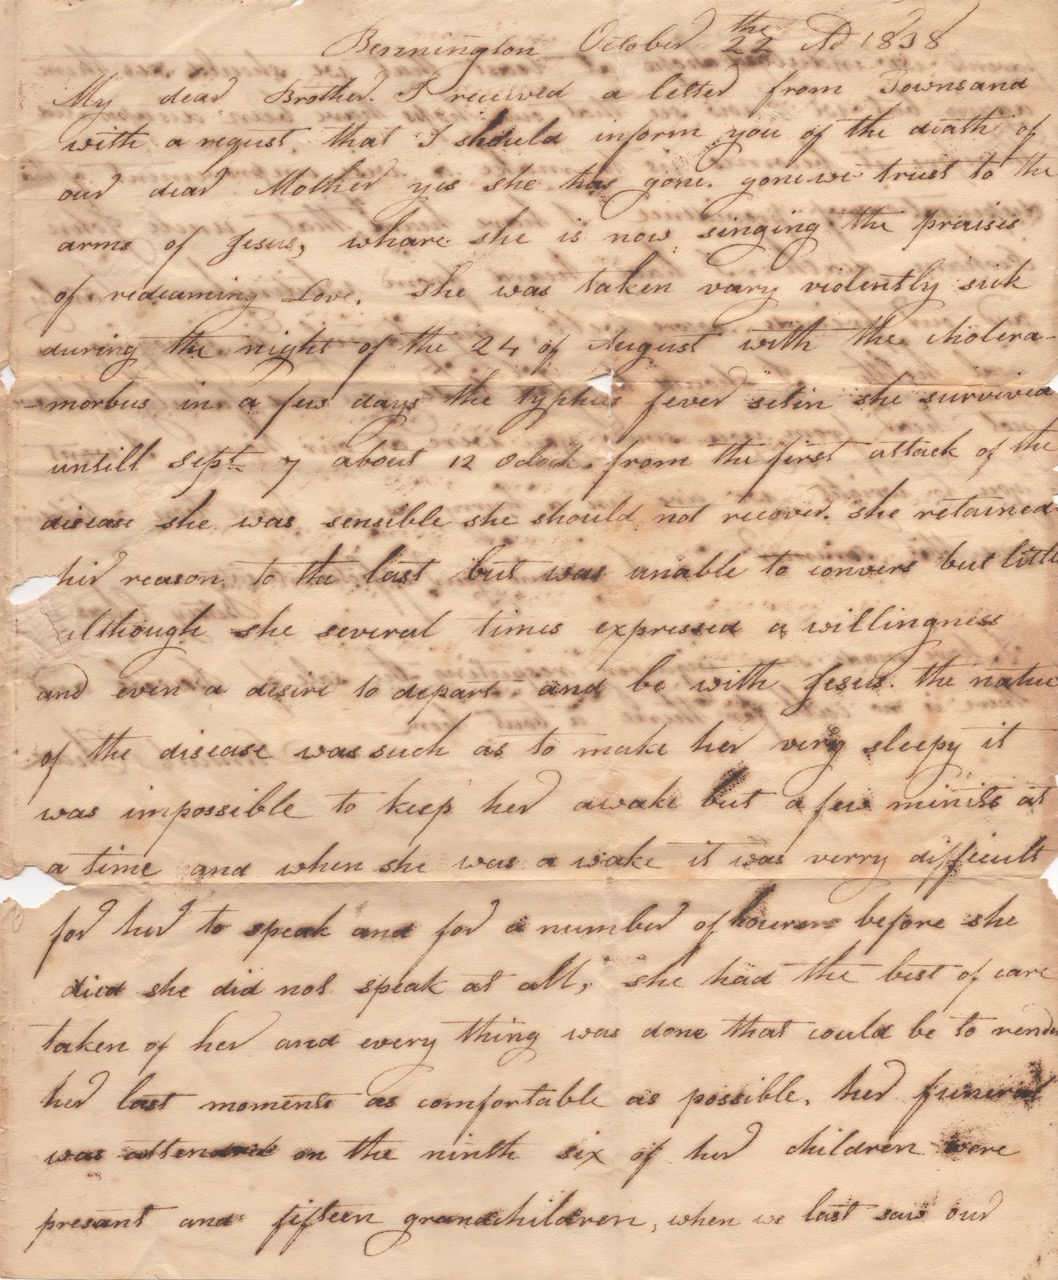 Bennington October 22 the AD 1838
My dear Brother. I received a letter from Townsand
with a request that I should inform you of the death of
our dear Mother yes she has gone. gone we trust to the
arms of Jesus, whare she is now singing the praises
of redeaming Love. She was taken vary violently sick
during the night of the 24 of August with the cholera-
-morbus in a few days the typhus fever setin she survived
untill Sept 7 about 12 Oclock. from the first attack of the
disease she was sensible she should not recover. She retained
her reason to the last but was unable to convers but little
although she several times expressed a willingness
and even a desire to depart and be with Jesus. the nature
of the disease was such as to make her very sleepy it
was impossible to keep her awake but a few minits at
a time and when she was a wake it was verry difficult
for her to speak and for a number of hours before she
died she did not speak at all, she had the best of care
taken of her and every thing was done that could be to render
her last moments as comfortable as possible, her funeral
was attended on the ninth six of her children were
presant and fifteen grandchildren, when we last saw our